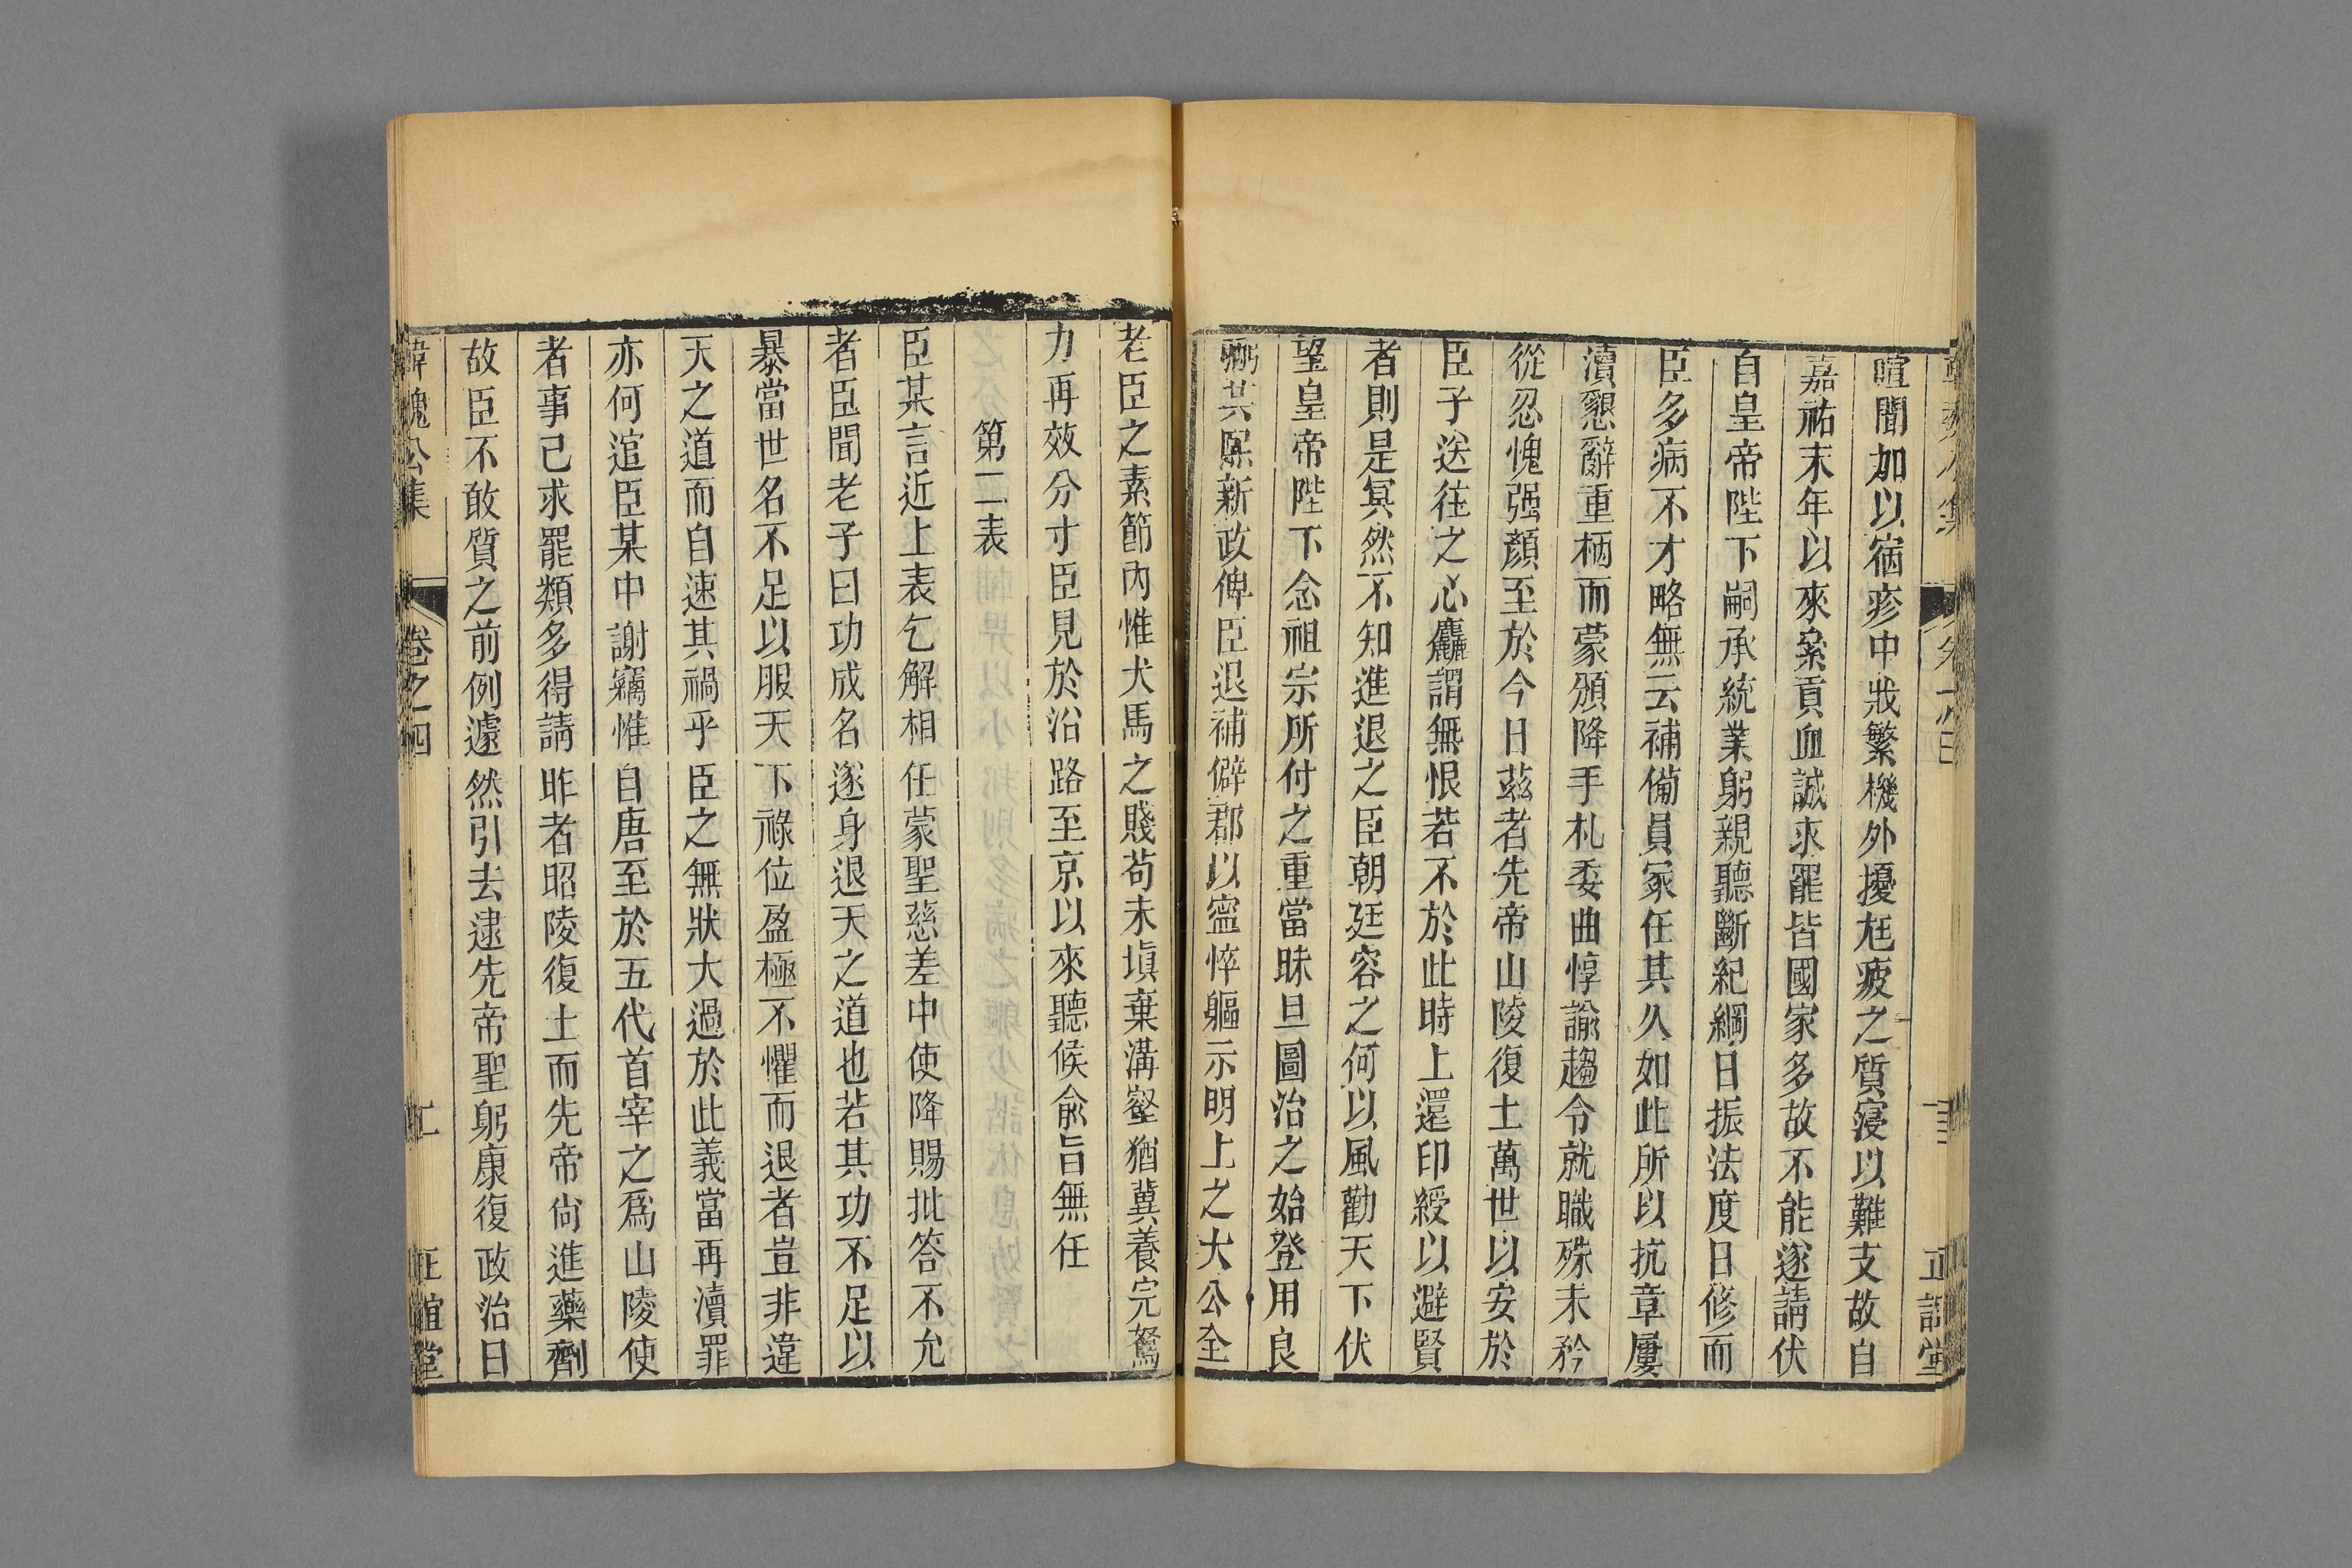 喧聞加以宿疹中戕繁機外擾尫疲之質寖以難支故自
嘉祐末年以來亟貢血誠求罷皆國家多故不能遂請伏
自皇帝陛下嗣承統業躬親聽斷紀綱日振法度日修而
臣多病不才略無云補備員冢任其久如此所以抗章屢
瀆懇辭重柄而蒙頒降手札委曲惇諭趨令就職殊未矜
從忍愧强顏至於今日茲者先帝山陵復土萬世以安於
臣子送往之心麤謂無恨若不於此時上還印綬以避賢
者則是冥然不知進退之臣朝廷容之何以風勸天下伏
望皇帝陛下念祖宗所付之重當昧旦圖治之始登用良
弼共熈新政俾臣退補僻郡以寧悴軀示明上之大公全
老臣之素節內惟犬馬之賤苟未塡棄溝壑猶冀養完駑
力再效分寸臣見於沿路至京以來聽候兪旨無任
第二表
臣某言近上表乞解相任蒙聖慈差中使降賜批答不允
者臣聞老子曰功成名遂身退天之道也若其功不足以
暴當世名不足以服天下祿位盈極不懼而退者豈非違
天之道而自速其禍乎臣之無狀大過於此義當再瀆罪
亦何逭臣某中謝竊惟自唐至於五代首宰之爲山陵使
者事已求罷類多得請昨者昭陵復土而先帝尙進藥劑
故臣不敢質之前例遽然引去逮先帝聖躬康復政治日
韓魏公集
卷之四
正誼堂